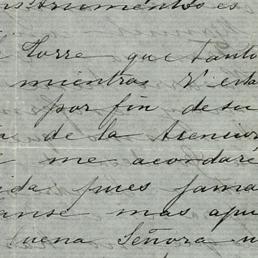 instrumentos es
Torre que tanto
mientras V. esta
por fin de su
de la atencion
me acordare
ida pues jama
anse mas apu
buena Señora